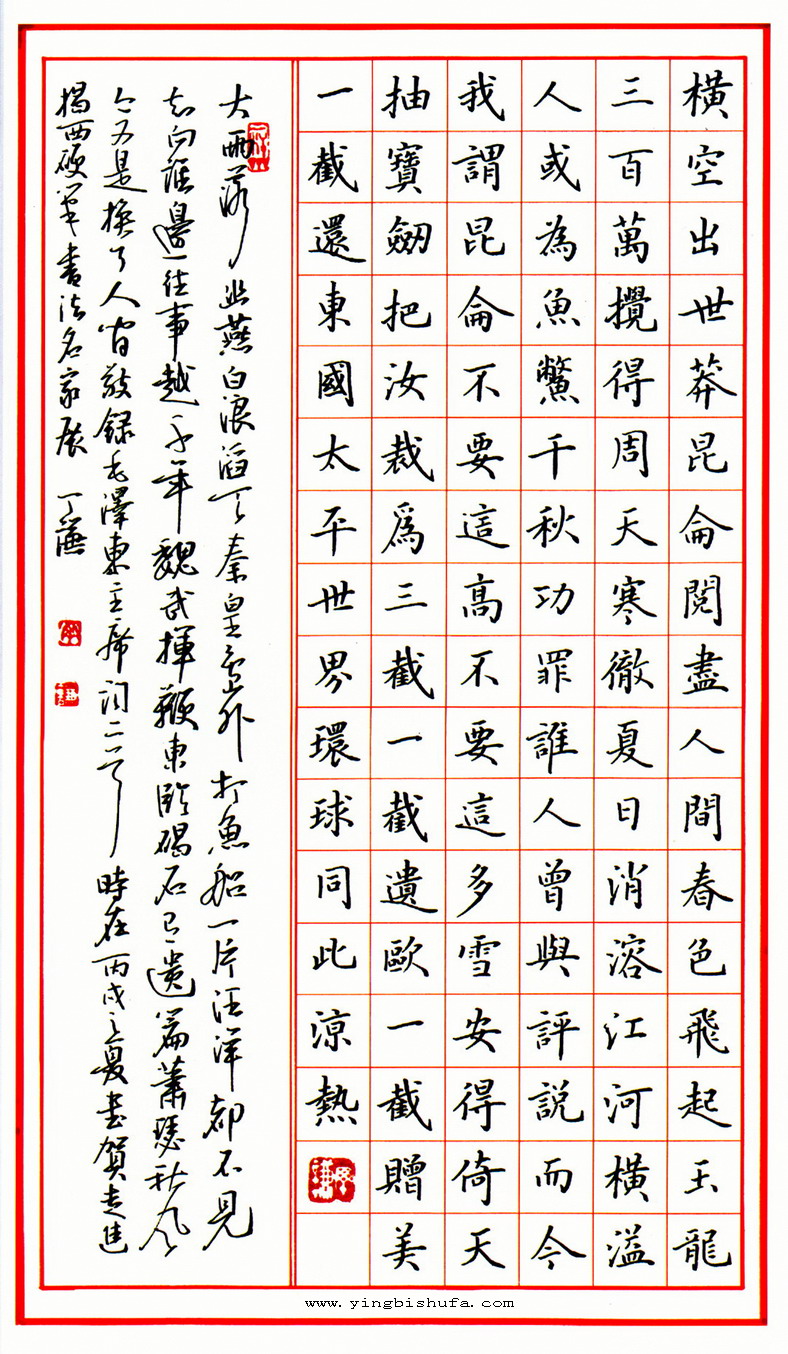 橫空出世莽昆侖閱盡人間春色飛起玉龍
三百萬攪得周天寒徹夏日消溶江河橫溢
人或為魚鱉千秋功罪誰人曾與評説而今
我謂昆侖不要這高不要這多雪安得倚天
抽寶劒把汝裁爲三截一截遺歐一截贈美
一截還東國太平世界環球同此涼熱
大雨落幽燕白浪滔天秦皇島外打魚船一片汪洋都不見
知向誰邊往事越千年魏武揮鞭東臨碣石有遺篇蕭瑟秋風
今又是換了人間敬錄毛澤東主席詞二首時在丙戌之夏書賀走進
揭西硬筆書法名家展 丁謙
www.yingbishufa.com